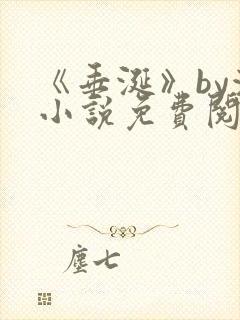 《垂涎》by
小說免費閱
塵七